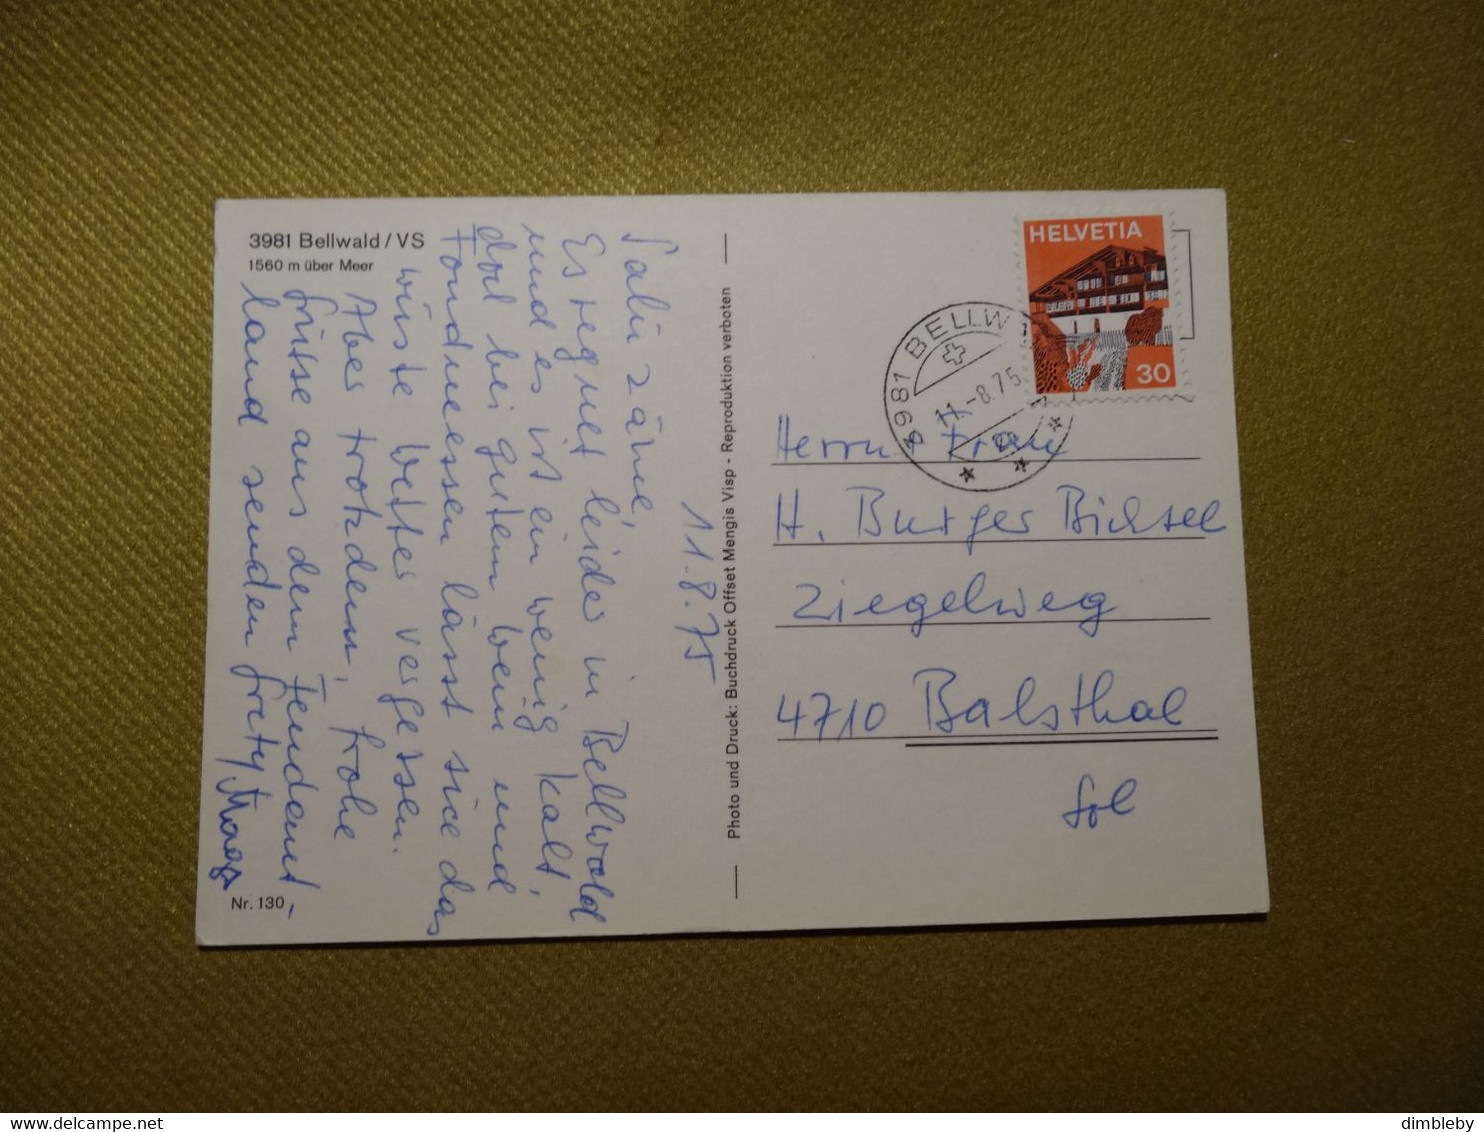 3981 Bellwald / VS
1560 m über Meer
11.8.75
Salü zäme,
Es regnet leider in Bellwald
und es ist ein wenig kalt,
doch bei gutem Wein und
Fonduessen lässt sice das
wüste Wetter vergessen.
Aber trotzdem, frohe
Grüsse aus dem Fendant-
land senden Grety
Nr. 130
Photo und Druck: Buchdruck Offset Mengis Visp - Reproduktion verboten
HELVETIA
30
3981 BELLW
11.-8.75
Herrn + Frau
H. Burger Bichsel
Ziegelweg
4710 Balsthal
Sol
dimbleby